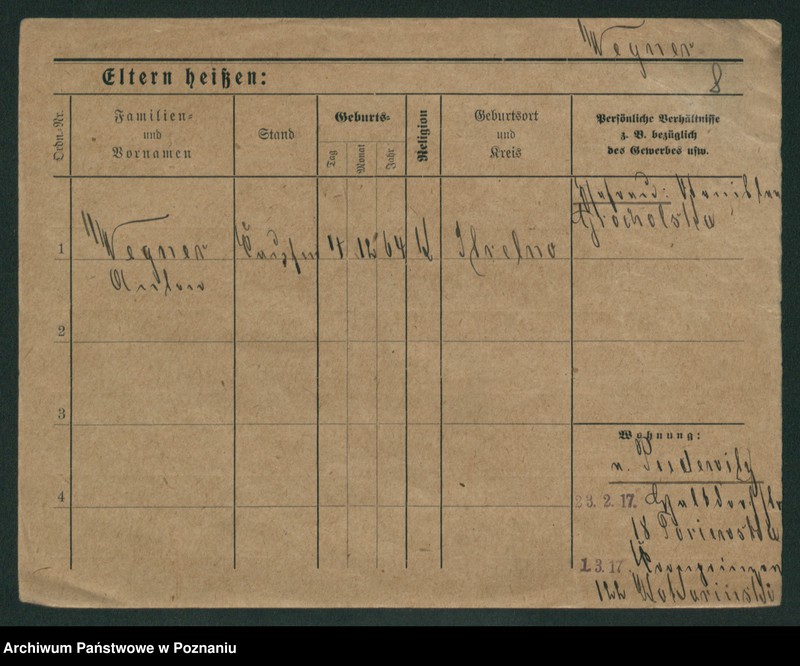 Wegner
8
Eltern heißen:
Ordn.-Nr.
Familien-
und
Vornamen
Stand
Geburts-
Tag
Monat
Jahr
Religion
Geburtsort
und
Kreis
Persönliche Verhältnisse
z. B. bezüglich
des Gewerbes usw.
Ehefrau:
Grocholska
1
Wegner
Anton
4
12
64
K
Strelno
2
3
4
Wohnung:
n. Pudewitz
23. 2. 17.
18
1. 3. 17.
122
Archiwum Państwowe w Poznaniu